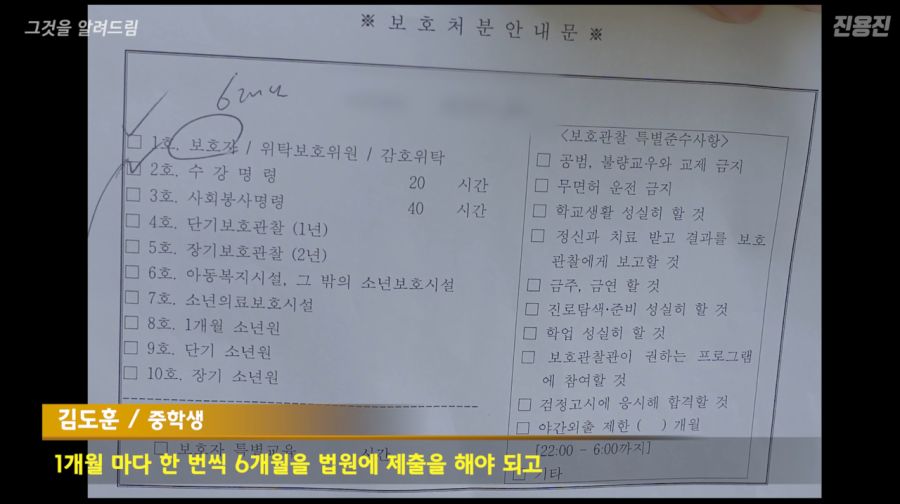 그것을 알려드림
진용진
※ 보 호 처 분 안 내 문 ※
6개월
□ 1호. 보호자 / 위탁보호위원 / 감호위탁
□ 2호. 수 강 명 령 20 시간
□ 3호. 사회봉사명령 40 시간
□ 4호. 단기보호관찰 (1년)
□ 5호. 장기보호관찰 (2년)
□ 6호. 아동복지시설, 그 밖의 소년보호시설
□ 7호. 소년의료보호시설
□ 8호. 1개월 소년원
□ 9호. 단기 소년원
□ 10호. 장기 소년원
□ 보호자 특별교육 시간
<보호관찰 특별준수사항>
□ 공범, 불량교우와 교제 금지
□ 무면허 운전 금지
□ 학교생활 성실히 할 것
□ 정신과 치료 받고 결과를 보호
관찰에게 보고할 것
□ 금주, 금연 할 것
□ 진로탐색·준비 성실히 할 것
□ 학업 성실히 할 것
□ 보호관찰관이 권하는 프로그램
에 참여할 것
□ 검정고시에 응시해 합격할 것
□ 야간외출 제한 ( ) 개월
[22:00 - 6:00까지]
□ 기타
김도훈 / 중학생
1개월 마다 한 번씩 6개월을 법원에 제출을 해야 되고